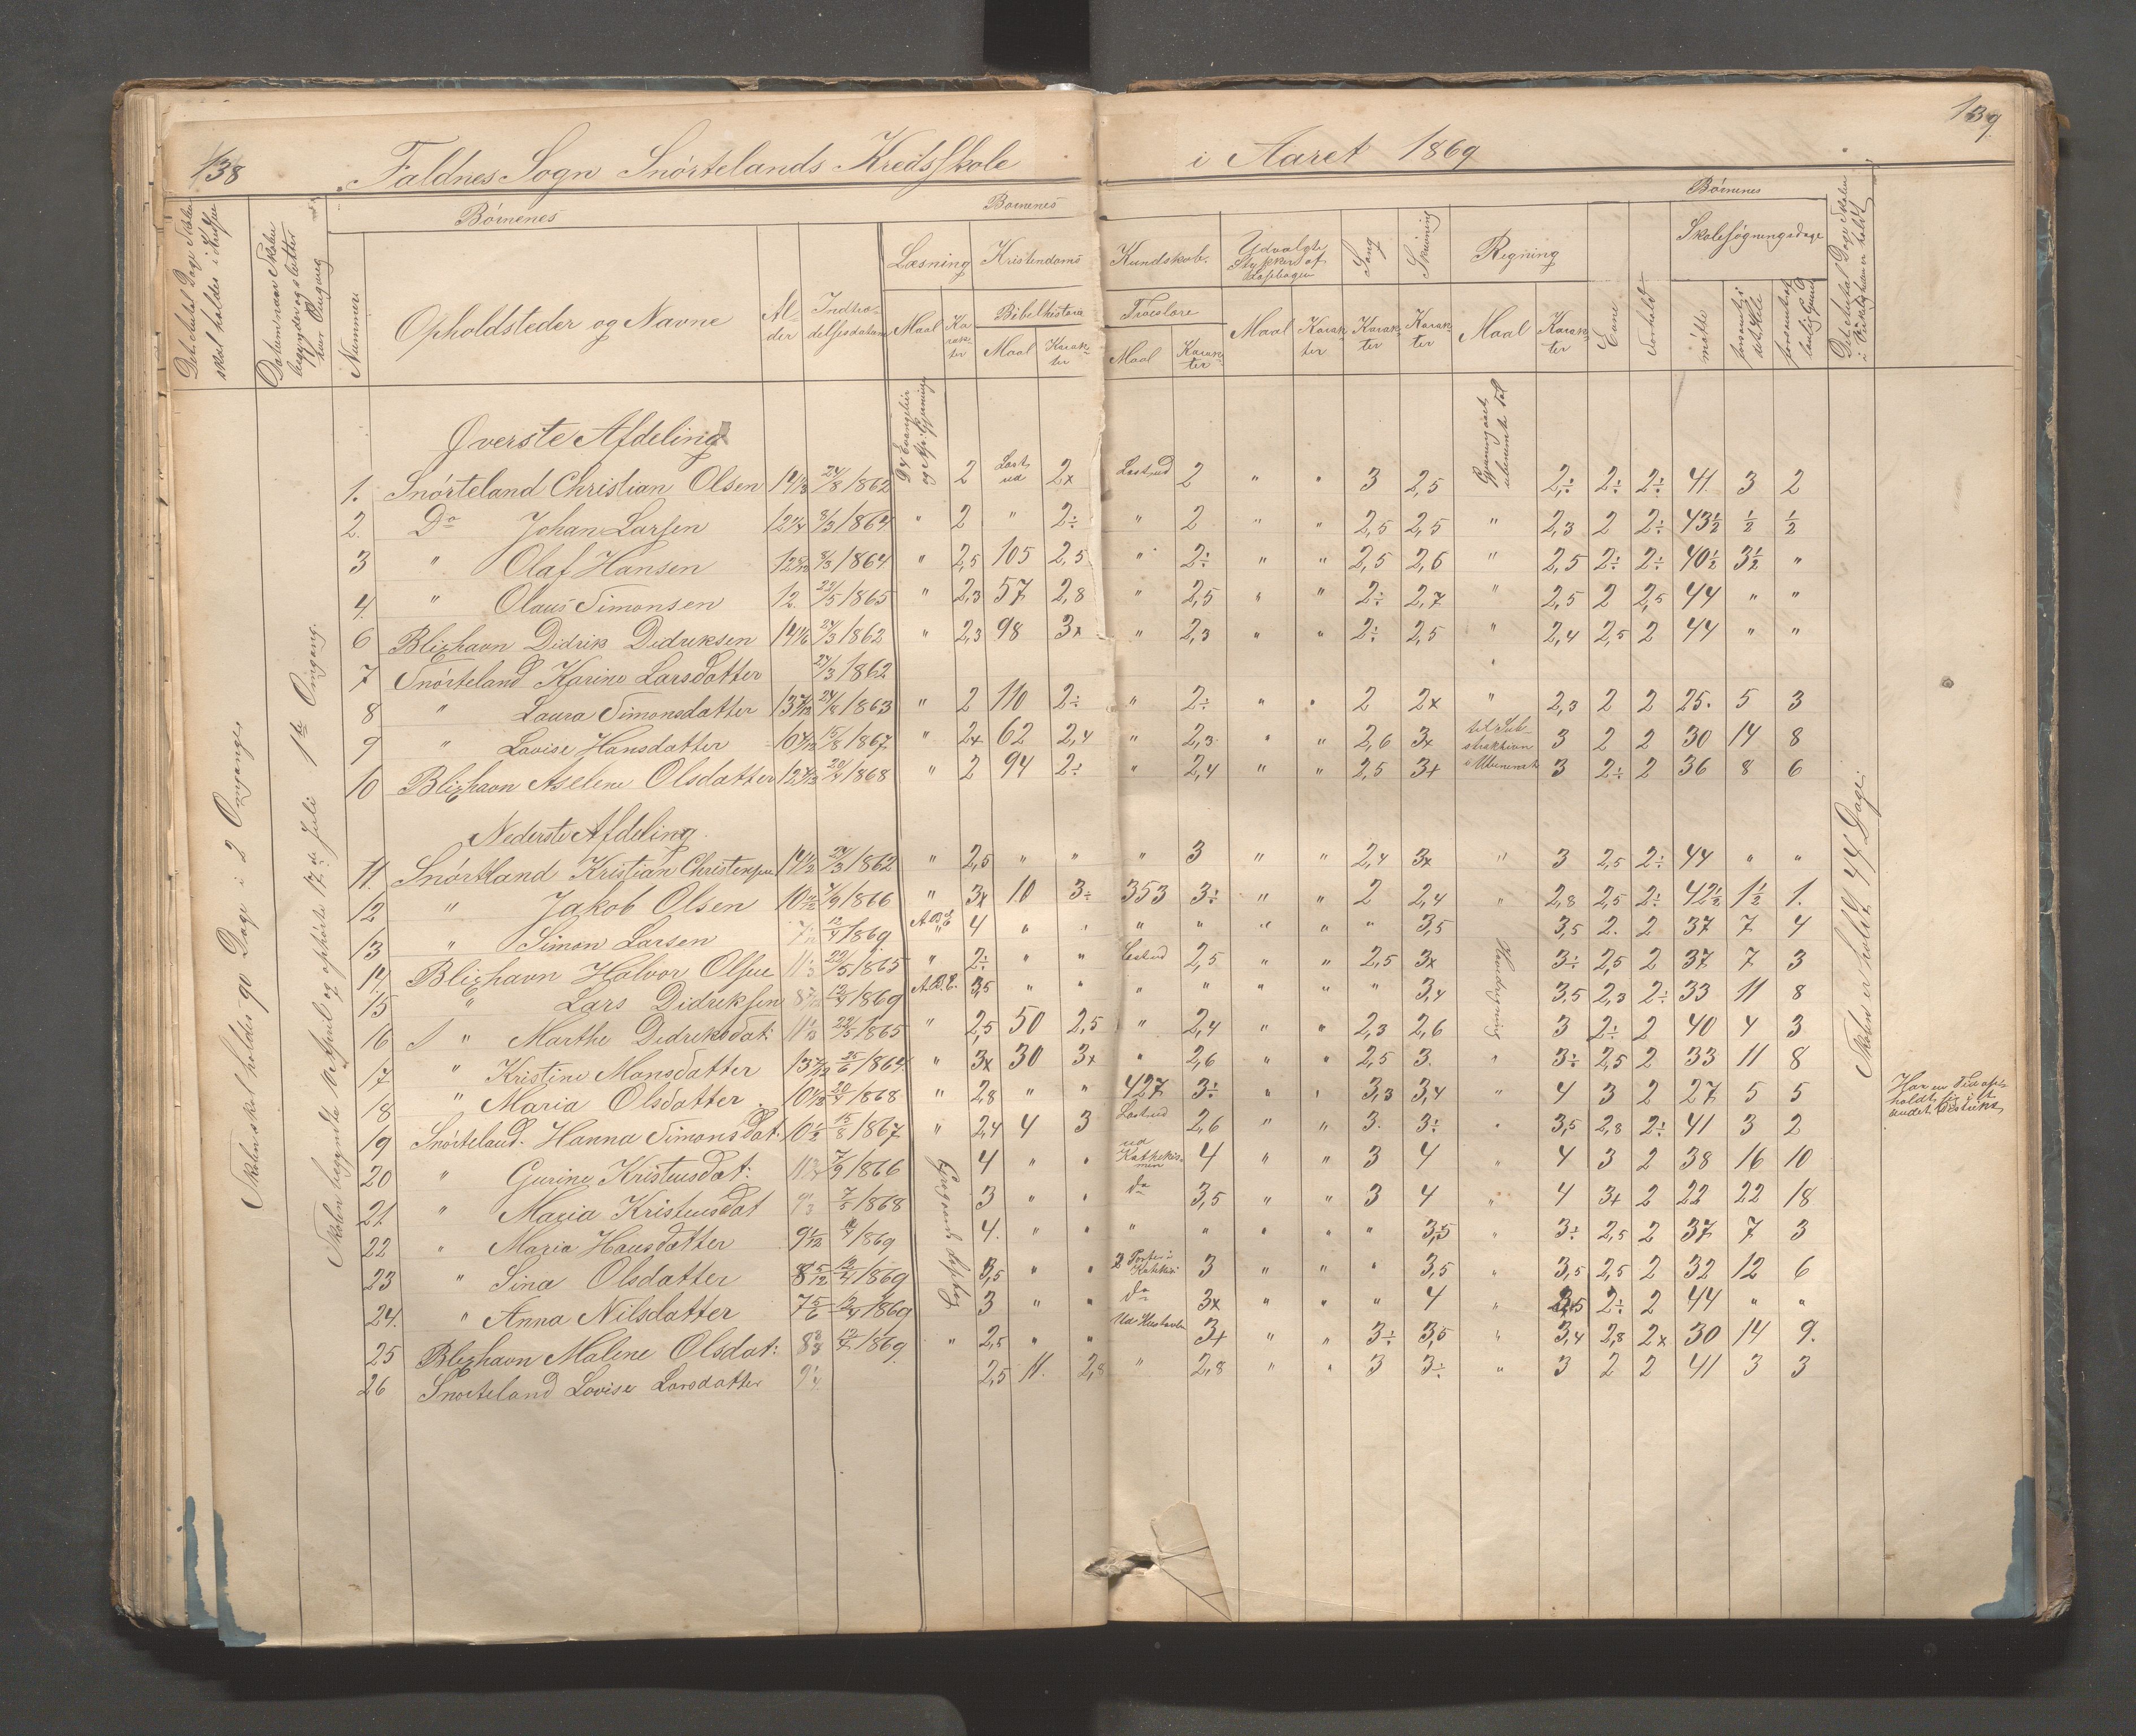 138
139.
Faldnes Sogn Snørtelands Kredsskole
i Aaret 1869
Børnenes
Børnenes
Børnenes
Det Antal Dage Skolen skal holdes i Kredsen
Datum naar Skolen begynder og slutter hver Omgang
Nummer
Opholdsteder og Navne
Alder
Indtrædelsesdatum
Læsning
Maal
Karakter
Kristendoms
Kundskab.
Bibelhistorie
Maal
Karakter
Troeslære
Maal
Karakter
Udvalgte Stykker af Læsebogen
Maal
Karakter
Sang
Karakter
Skrivning
Karakter
Regning
Maal
Karakter
Evne
Forhold
Skolesøgningsdage
mødte
forsømte i det Hele
forsømt af lovlig Grund
Det Antal Dage Skolen i Virkeligheden er holdt
Skolen skal holdes 90 Dage i 2 Omganger
Skolen begyndte 12te April og ophørte 17de Juli 1ste Omgang.
Øverste Afdeling
1. Snørteland Christian Olsen 24/8 1862 2 Læst ud 2x Læst ud 2 " " 3 2,5 2,÷ 2÷ 2÷ 41 3 2
2. Do Johan Larsen 12¼ 8/3 1864 " 2 " 2÷ " 2 " " 2,5 2,5 " 2,3 2 2÷ 43½ ½ ½
3 " Olaf Hansen 8/3 1864 " 2,5 105 2,5 " 2÷ " " 2,5 2,6 " 2,5 2÷ 2÷ 40½ 3½ "
4. " Olaus Simonsen 12. 22/5 1865 " 2,3 57 2,8 " 2,5 " " 2÷ 2,7 " 2,5 2 2,5 44 " "
6 Blixhavn Didrik Didriksen 24/3 1862 " 2,3 98 3x " 2,3 " " 2÷ 2,5 " 2,4 2,5 2 44 " "
7 Snørteland Karine Larsdatter 24/3 1862
8 " Laura Simonsdatter 24/8 1863 " 2 110 2÷ " 2÷ " " 2 2x " 2,3 2 2 25. 5 3
9 " Lovise Hansdatter 15/8 1867 " 2x 62 2,4 " 2,3 " " 2,6 3x til Substraktion 3 2 2 30 14 8
10 Blixhavn Aselene Olsdatter 20/4 1868 " 2 94 2÷ " 2,4 " " 2,5 3+ i Ubenevnt 3 2÷ 2 36 8 6
Nederste Afdeling.
11. Snørtland Kristian Christensen 24/3 1862 " 2,5 " " " 3 " " 2,4 3x " 3 2,5 2÷ 44 " "
12 " Jakob Olsen 7/9 1866 " 3x 10 3÷ 353 3÷ " " 2 2,4 " 2,8 2,5 2÷ 42½ 1½ 1.
13 " Simon Larsen 12/4 1869 A.B.C 4 " " " " " " " 3,5 3,5 2. 2 37 7 4
14. Blixhavn Halvor Olsen 22/5 1865 " 2÷ " " Læst ud 2,5 " " 2,5 3x 3÷ 2,5 2 37 7 3
15 " Lars Didriksen 12/4 1869 A.B.C. 3,5 " " " " " " " 3,4 3,5 2,3 2÷ 33 11 8
16 " Marthe Didriksdat: 22/5 1865 " 2,5 50 2,5 " 2,4 " " 2,3 2,6 3 2÷ 2 40 4 3
17 " Kristine Monsdatter 25/6 1864 " 3x 30 3x " 2,6 " " 2,5 3. " 3÷ 2,5 2 33 11 8
18 " Maria Olsdatter 20/4 1868 " 2,8 " " 427 3÷ " " 3,3 3,4 " 4 3 2 27 5 5
Har en Tid opholdt sig i et andet Distrikt.
19 Snørteland. Hanna Simonsdat: 15/8 1867 " 2,4 4 3 Læst ud 2,6 " " 3. 3÷ " 3,5 2,8 2÷ 41 3 2
20 " Gurine Kristensdat: 7/9 1866 4 " " ud Kathekismen 4 " " 3 4 " 4 3 2 38 16 10
21 " Maria Kristensdat 1868 3 " " do 3,5 " " 3 4 " 4 3+ 2 22 22 18
22 " Maria Hansdatter 1869 4. " " " " " " " 3,5 " 3÷ 2,5 2 37 7 3
23 " Sina Olsdatter 8 5/12 12/4 1869 3,5 " " 2 Parter i Kathki 3 " " " 3,5 " 3,5 2,5 2 32 12 6
24. " Anna Nilsdatter 7 5/6 12/4 1869 3 " " do 3x " " " 4 " 3,5 2÷ 2 44 " "
25 Blixhavn Malene Olsdat: 12/4 1869. " 2,5 " " 3+ " " 3÷ 3,5 " 3,4 2,8 2x 30 14 9.
26 Snørteland Lovise Larsdatter 2,5 11. 2,8 " 2,8 " " 3 3÷ " 3 2 2 41 3 3
Skolen er holdt 44 Dage.